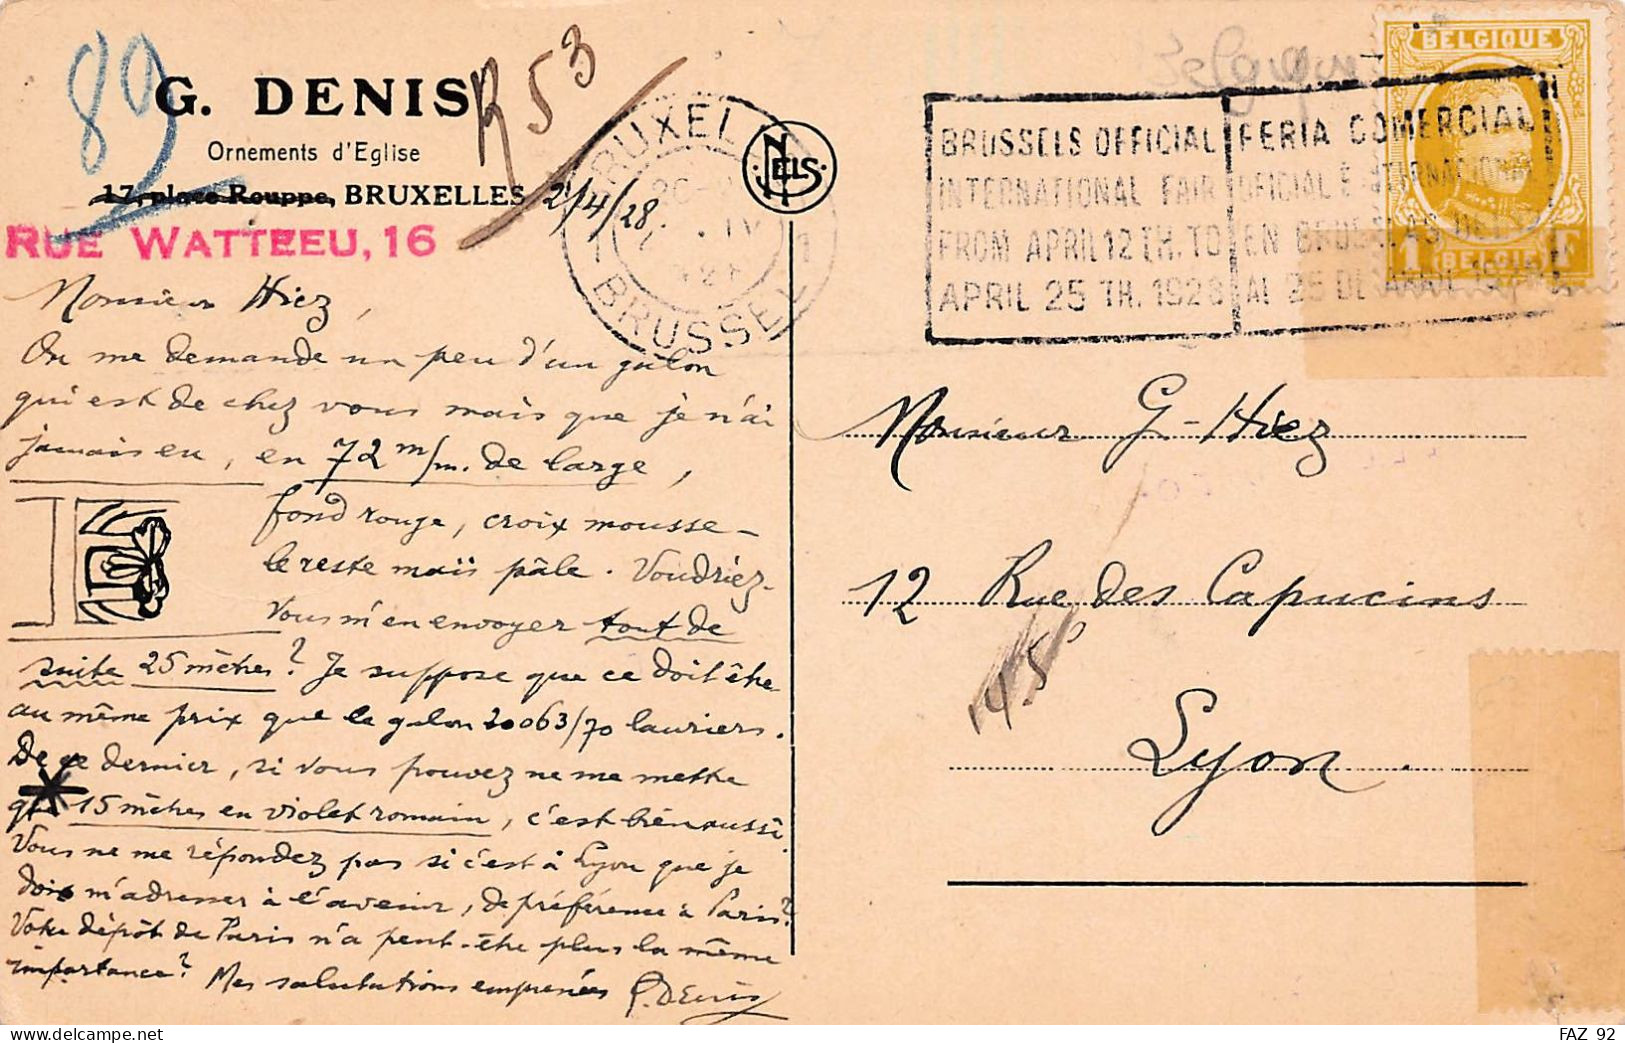 89
G. DENIS
R 53
Ornements d'Eglise
17, place Rouppe, BRUXELLES 2/4/28
RUE WATTEEU, 16
NELS
BRUXEL
IV
1 1
BRUSSEL
Belgique
BELGIQUE
1 F
BELGIË
BRUSSELS OFFICIAL
INTERNATIONAL FAIR
FROM APRIL 12 TH. TO
APRIL 25 TH. 1928
FERIA COMERCIAL
OFICIAL É INTERNACIONAL
EN BRUSELAS DEL
AL 25 DE ABRIL 1928
Monsieur Hiez,
On me demande un peu d'un galon
qui est de chez vous mais que je n'ai
jamais eu, en 72 m/m. de large,
fond rouge, croix mousse –
le reste maïs pâle. Voudriez-
vous m'en envoyer tout de
suite 25 mètres? Je suppose que ce doit être
au même prix que le galon 20063/70 lauriers.
De ce dernier, si vous pouvez ne me mettre
que 15 mètres en violet romain, c'est bien aussi.
Vous ne me répondez pas si c'est à Lyon que je
dois m'adresser à l'avenir, de préférence à Paris?
Votre dépôt de Paris n'a peut-être plus la même
importance? Mes salutations empressées G. Denis
Monsieur G-Hiez
12 Rue des Capucins
45
Lyon.
FAZ 92